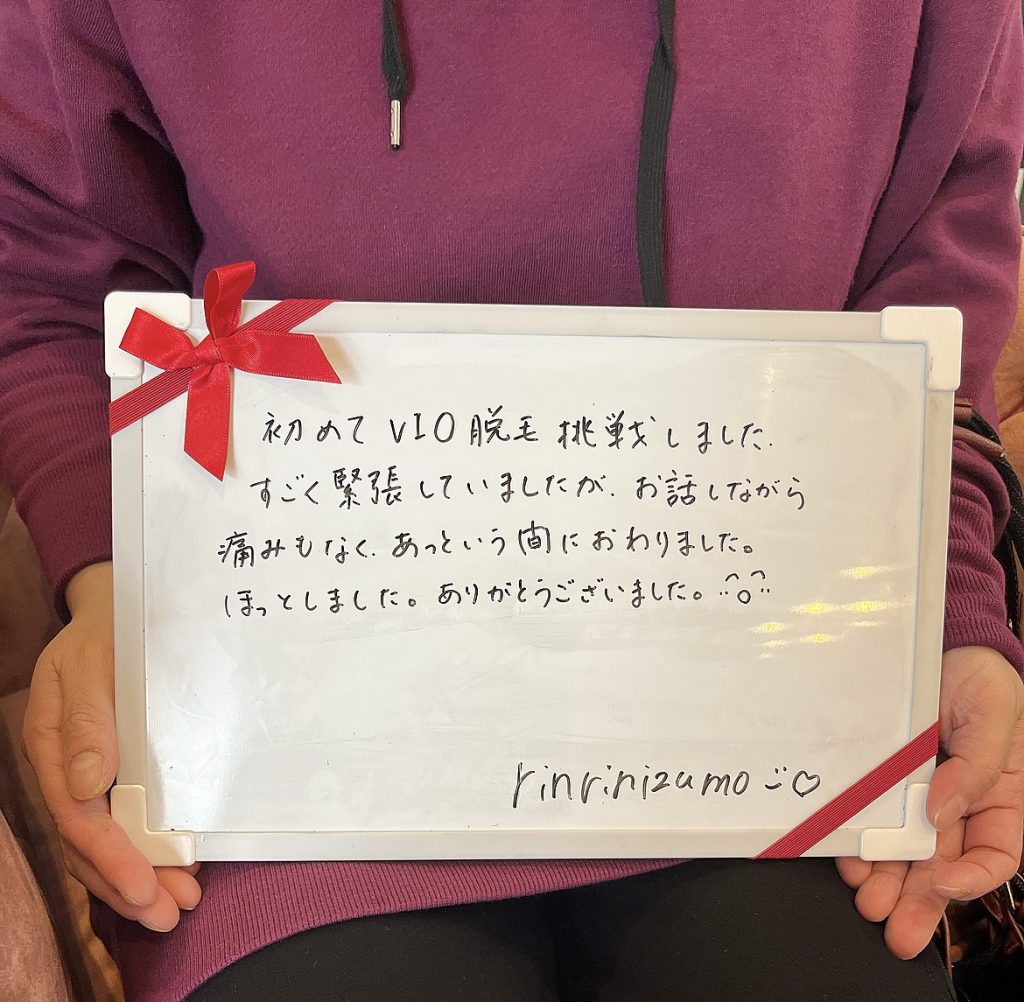 初めて VIO 脱毛 挑戦しました.
すごく緊張していましたが、お話しながら
痛みもなく、あっという間におわりました。
ほっとしました。ありがとうございました。
rinrinizumo ♡